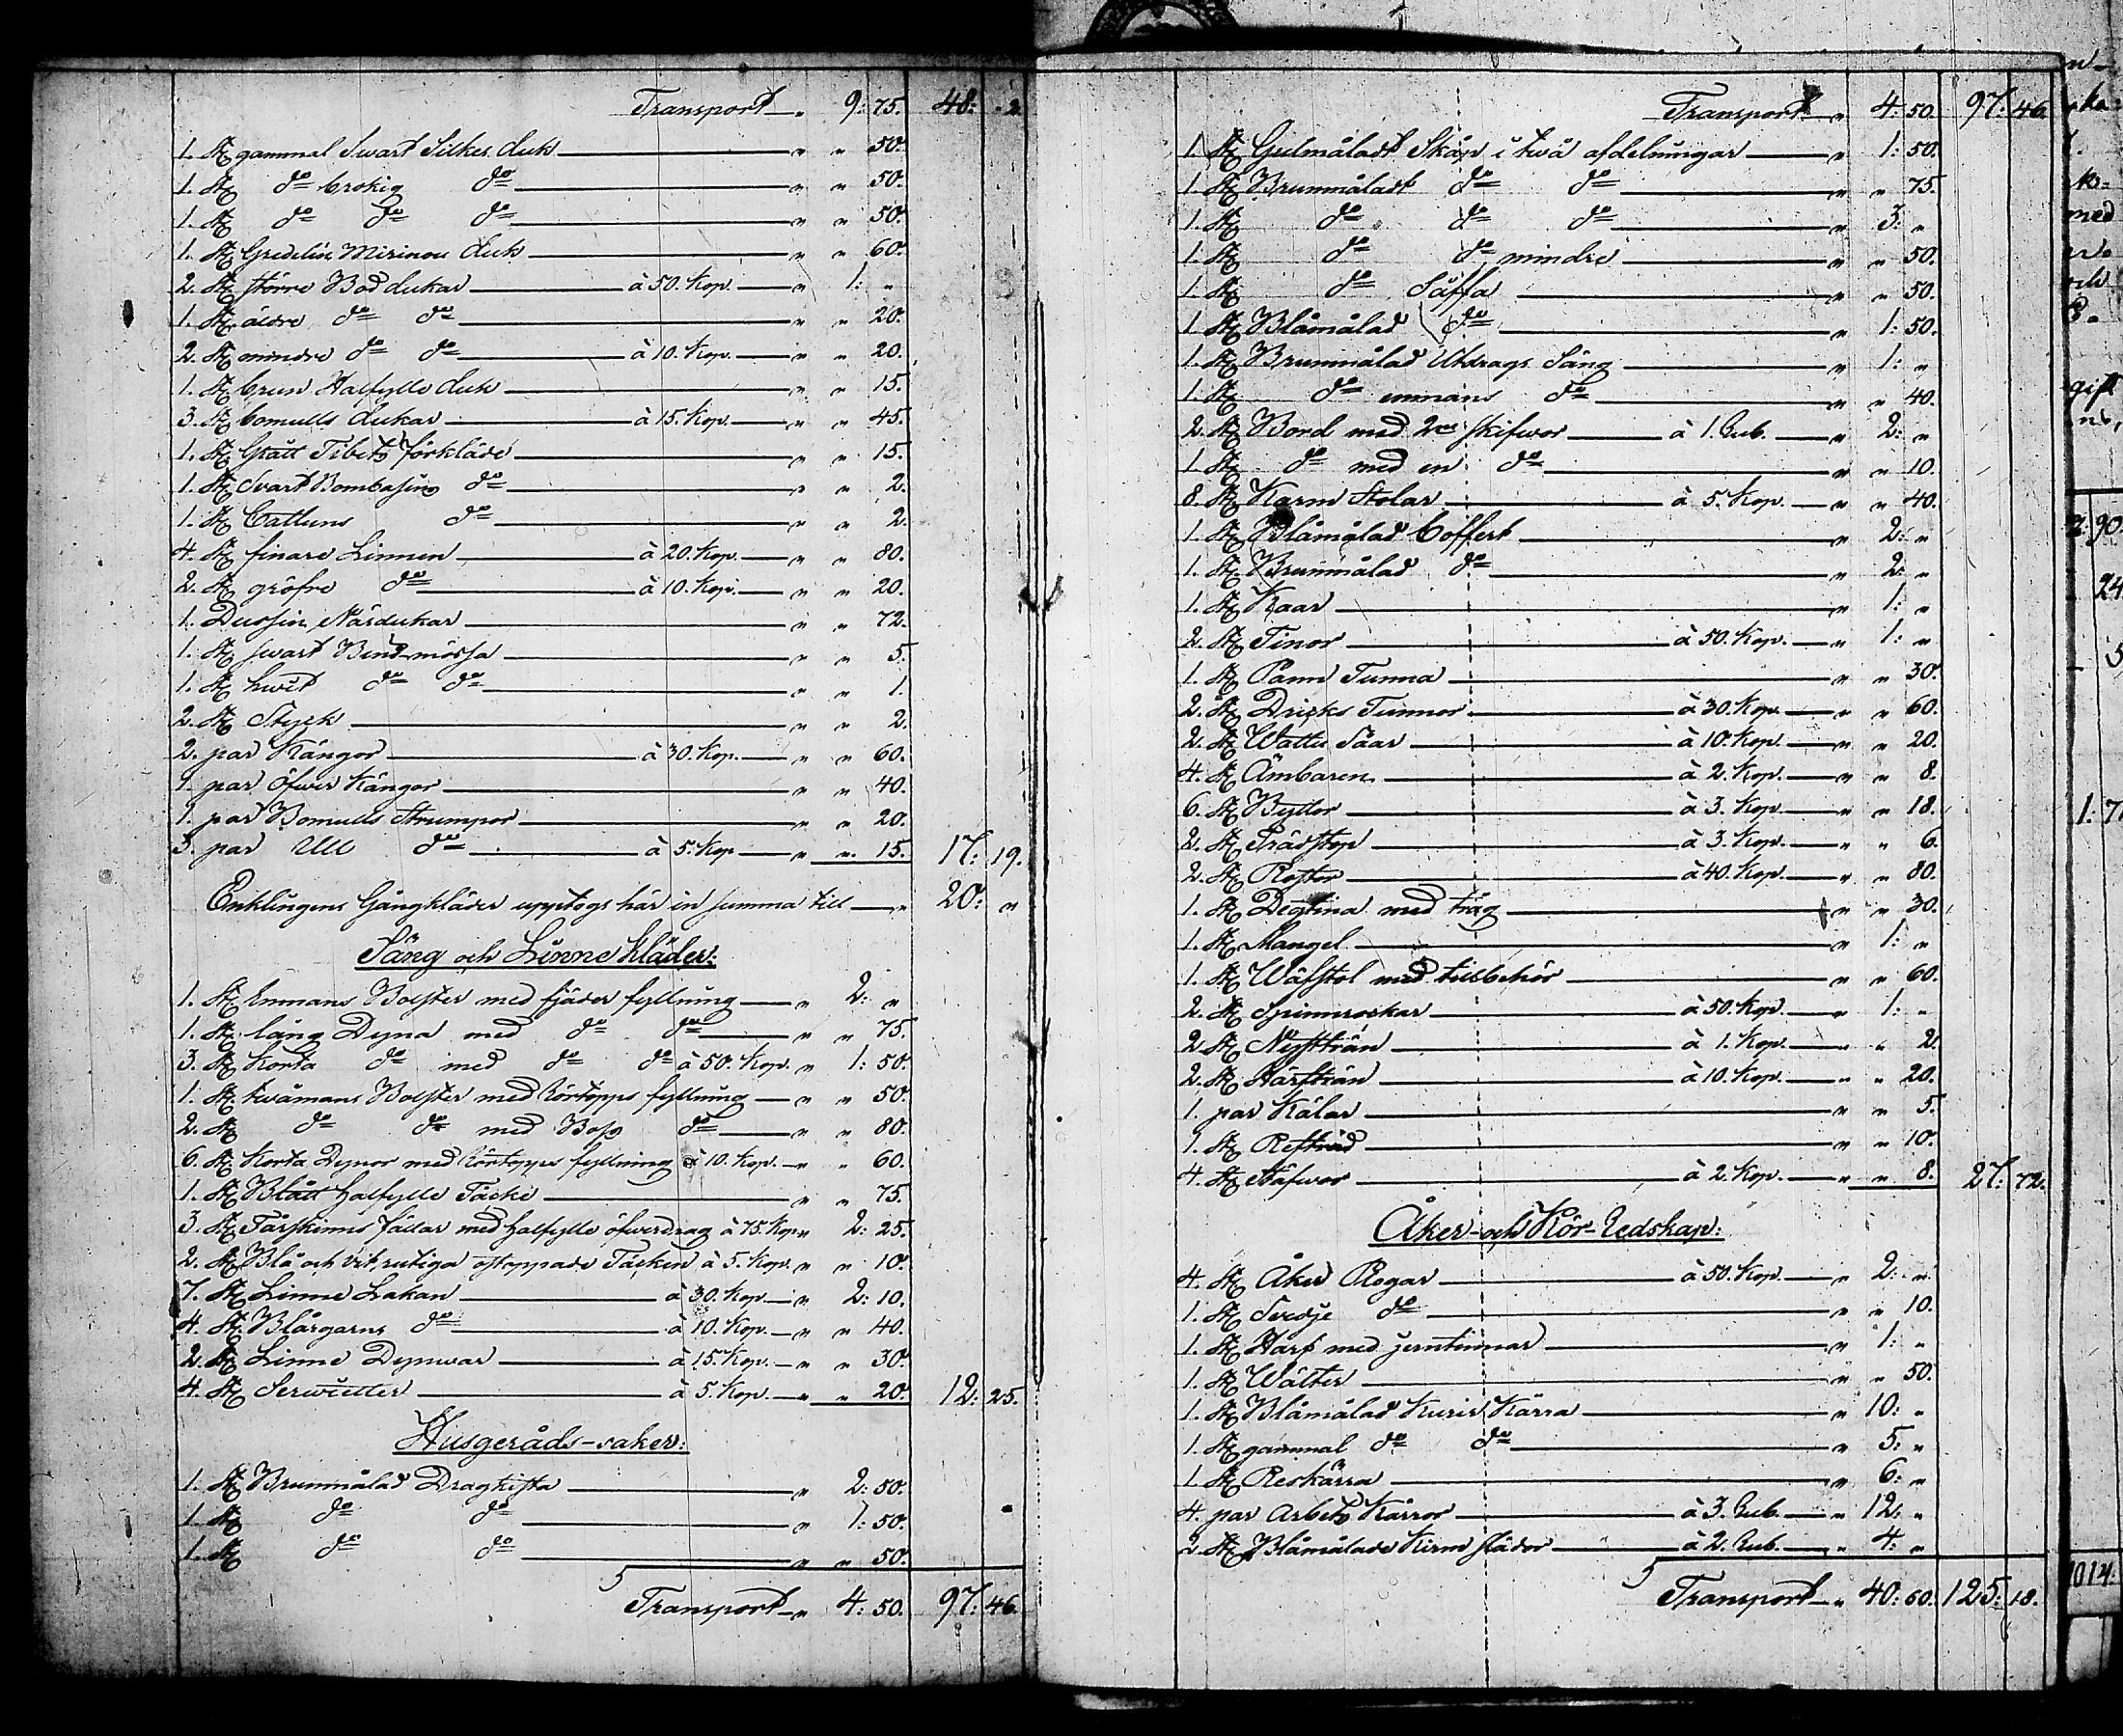 Transport " 9: 75. 48: 2
1. St gammal Swart Silkes duk " " 50.
1. St do brokig do " " 50.
1. St do do do " " 50.
1. St Gredelin Mirinou duk " " 60.
2. St större Bod dukar à 50. Kop. " 1: "
1. St äldre do do " " 20.
2. St mindre do do à 10. Kop. " " 20.
1. St brun Halfylle duk " " 15.
3. St bomulls dukar à 15. Kop. " " 45.
1. St Grått Tibets förkläde " " 15.
1. St Svart Bombasins do " " 2.
1. St Cattuns do " " 2.
4. St finare Linnen à 20. Kop. " " 80.
2. St gröfre do à 10. Kop. " " 20.
1. Dussin Näsdukar " " 72.
1. St swart Bindmössa " " 5.
1. St hwit do do " " 1.
2. St Styck " " 2.
2. par Kängor à 30. Kop. " " 60.
1. par öfwer Kängor " " 40.
1. par Bomulls Strumpor " " 20.
3. par Ull do à 5. Kop " " 15. 17: 19.
Enklingens Gångkläder upptogs här in summa till " 20: "
Säng och Linne kläder:
1. St Enmans Bolster med fjäder fyllning " 2: "
1. St lång Dyna med do do " " 75.
3. St korta do med do do à 50. Kop. " 1: 50.
1. St tvåmans Bolster med Rörtopps fyllning " " 50.
2. St do do med Boss do " " 80.
6. St Korta Dynor med Rörtopps fyllning à 10. Kop. " " 60.
1. St Blått halfylle Täcke " " 75.
3. St Fårskinns fällar med halfylle öfverdrag à 75. Kop " 2: 25.
2. St Blå och vit rutiga ostoppade Täcken à 5. Kop. " " 10.
7. St Linne Lakan à 30. Kop. " 2: 10.
4. St Blårgarns do à 10. Kop. " " 40.
2. St Linne Dynwar à 15. Kop. " " 30.
4. St Servietter à 5. Kop. " " 20. 12: 25.
Husgeråds-saker:
1. St Brunmålad Dragkista " 2: 50.
1. St do do " 1: 50.
1. St do do " " 50.
Transport " 4: 50. 97: 46.
Transport " 4: 50. 97: 46.
1. St Gulmåladt Skåp i två afdelningar " 1: 50.
1. St Brunmåladt do do " " 75.
1. St do do do " 3: "
1. St do do mindre " " 50.
1. St do Säffa " " 50.
1. St Blåmålad do " 1: 50.
1. St Brunmålad Utdrags Säng " 1: "
1. St do enmans do " " 40.
2. St Bord med 2ne skifwor à 1. Rub. " 2: "
1. St do med en do " " 10.
8. St Karm Stolar à 5. Kop. " " 40.
1. St Blåmålad Coffert " 2: "
1. St Brunmålad do " 2: "
1. St Kaar " 1: "
2. St Tinor à 50. Kop. " 1: "
1. St Pann Tunna " " 30.
2. St Dricks Tunnor à 30. Kop " " 60.
2. St Wattu Såar à 10. Kop. " " 20.
4. St Ämbaren à 2. Kop. " " 8.
6. St Byttor à 3. Kop. " " 18.
2. St Trädstop à 3. Kop. " " 6.
2. St Rostor à 40. Kop. " " 80.
1. St Degtina med tråg " " 30.
1. St Mangel " 1: "
1. St Wäfstol med tillbehör " " 60.
2. St Spinnrockar à 50. Kop. " 1: "
2. St Nystträn à 1. Kop. " " 2.
2. St Härfträn à 10. Kop. " " 20.
1. par Kålar " " 5.
1. St Refträd " " 10.
4. St Stäfwor à 2. Kop. " " 8. 27: 72.
Åker- och Kör-Redskap:
4. St Åker Plogar à 50. Kop. " 2: "
1. St Svedje do " " 10.
1. St Harf med jerntinnar " 1: "
1. St Wälter " " 50.
1. St Blåmålad Kurir Kärra " 10: "
1. St gammal do do " 5: "
1. St Reskärra " 6: "
4. par Arbets Kärror à 3. Rub. " 12: "
2. St Blåmålade Kirm slädor à 2. Rub. " 4: "
Transport " 40: 60. 125: 18.